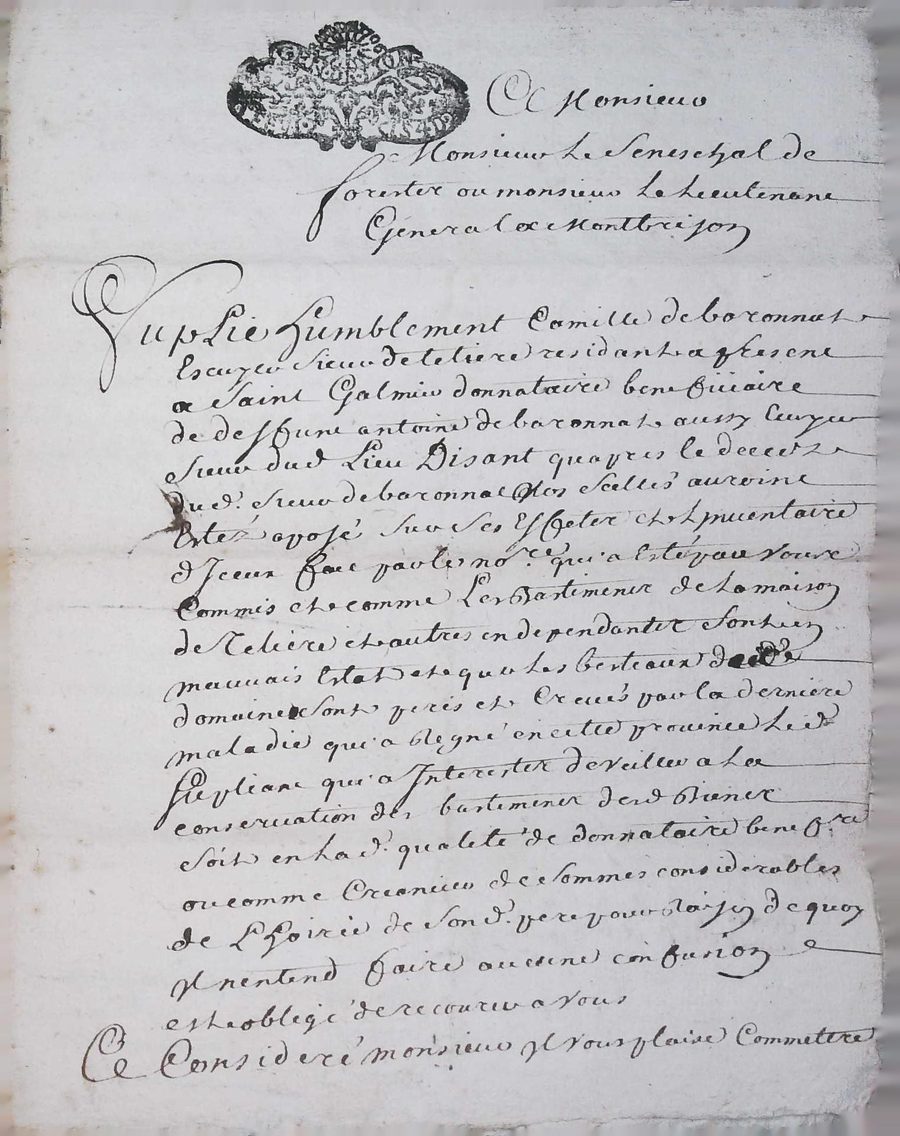 A Monsieur
Monsieur Le Seneschal de
forester ou monsieur Le Lieutenant
General de Montbrison
Suplie humblement Camille de baronnat
Escuyer Sieur de teliere residant a presene
a Saint Galmier donnataire beneficiaire
de deffunc antoine de baronnat aussy Escuyer
Sieur dud. Lieu Disant quapres le decest
dud. Sieur de baronnat Nos Scellés auroine
Estéz aposé sur ses Effeter et Inventaire
d'Iceux fait par le nore. qui a Esté par Vous
Commis et comme Les Bastimener de la maison
de Teliere et autres en dependanter Sont en
mauvais Estat et que les besteaux de
domaine Sont peris et Crevés par la derniere
maladie qui a Regné en cette province Led.
Supliant qui a Interester de veiller a La
conservation des bastimener desd. Biener
Soit en Lad. qualeté de donnataire benefre
ou comme Creancier de Sommes considerables
de Lhoirie de Sond. pere pour Raison de quoy
Il nentend faire aucune confusion
est obligé de recourir a Vous
Ce Consideré monsieur Il vous plaise Commettre